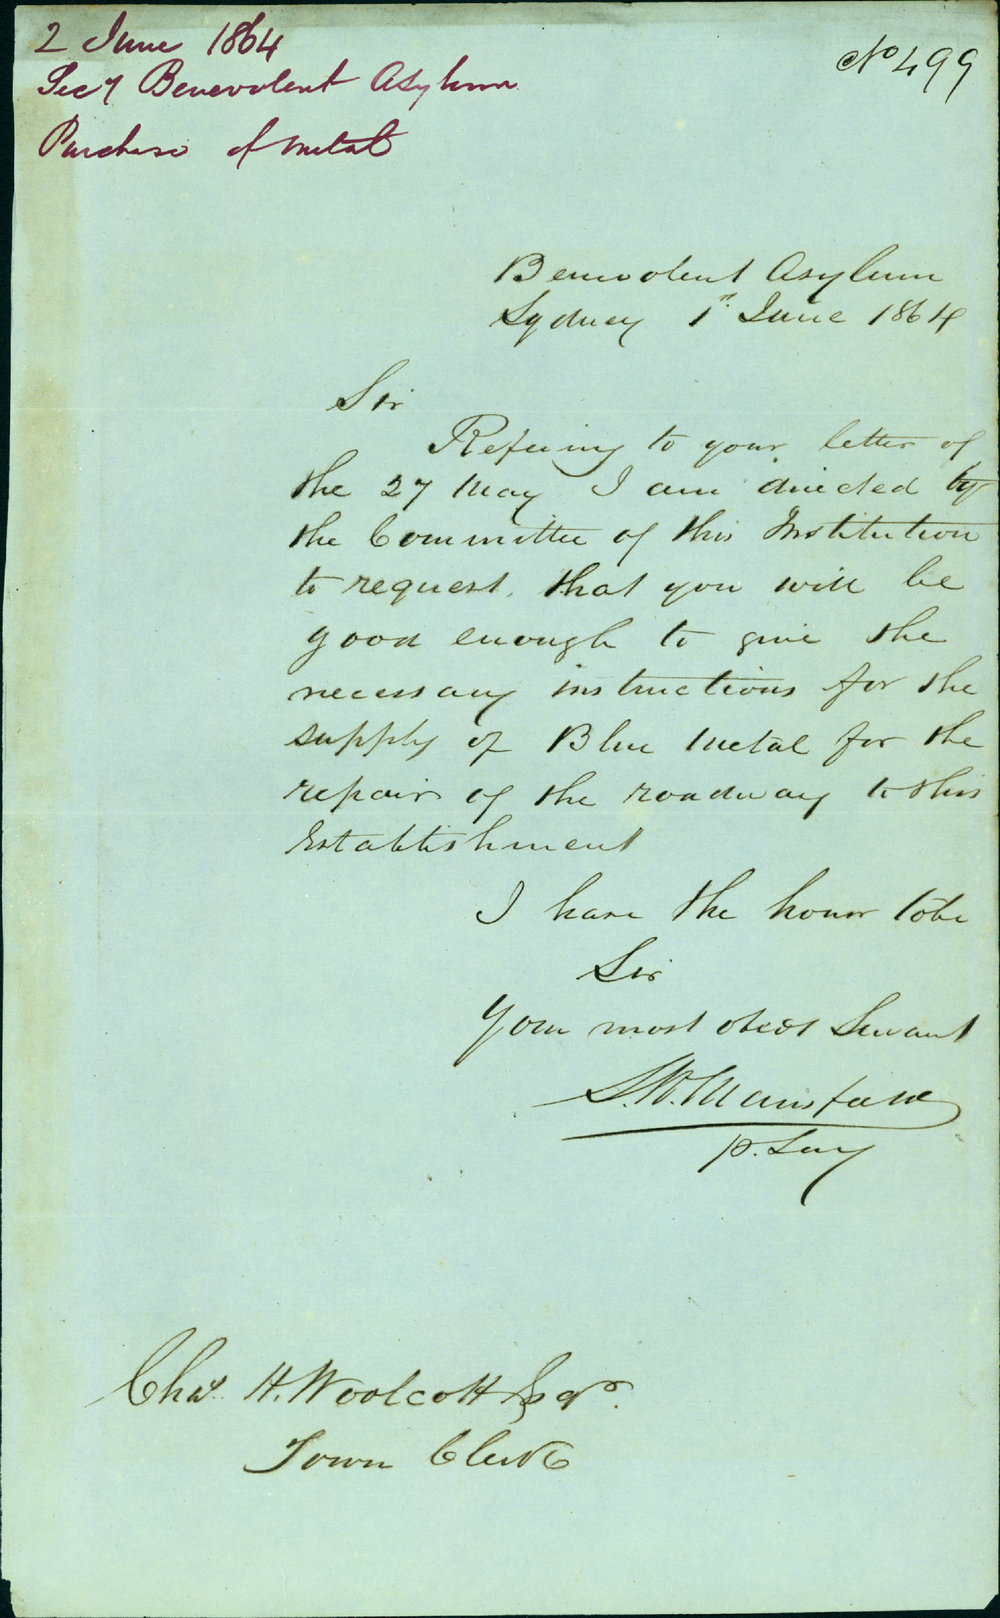 2 June 1864
Secy Benevolent Asylum
Purchase of metal
No 499
Benevolent Asylum
Sydney 1st June 1864
Sir
Refering to your letter of
the 27 May I am directed by
the Committee of this Institution
to request, that you will be
good enough to give the
necessary instructions for the
supply of Blue Metal for the
repair of the roadway to this
Establishment
I have the honor to be
Sir
Your most obedt Servant
Mansfield
Chas. H. Woolcott Esqr.
Town Clerk